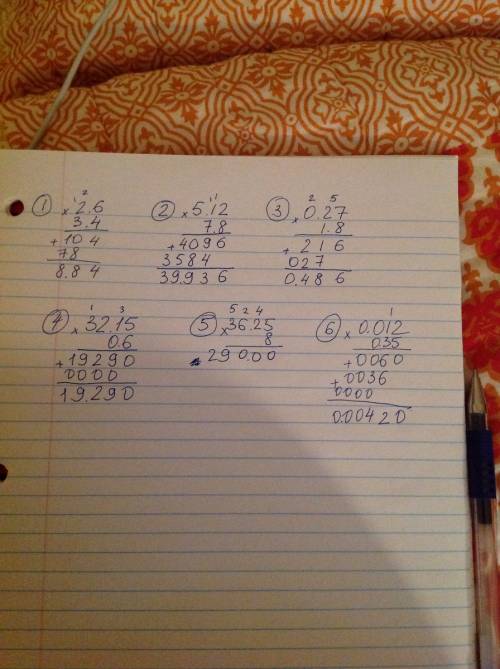 ① ② ③
1 2 11 2 5
× 2.6 × 5.12 × 0.27
3.4 7.8 1.8
+ 104 + 4096 + 216
78 3584 027
8.84 39.936 0.486
④ ⑤ ⑥
1 3 5 2 4 1
× 32.15 × 36.25 × 0.012
0.6 8 0.35
+ 19290 290.00 + 0060
0000 + 0036
19.290 0000
0.00420